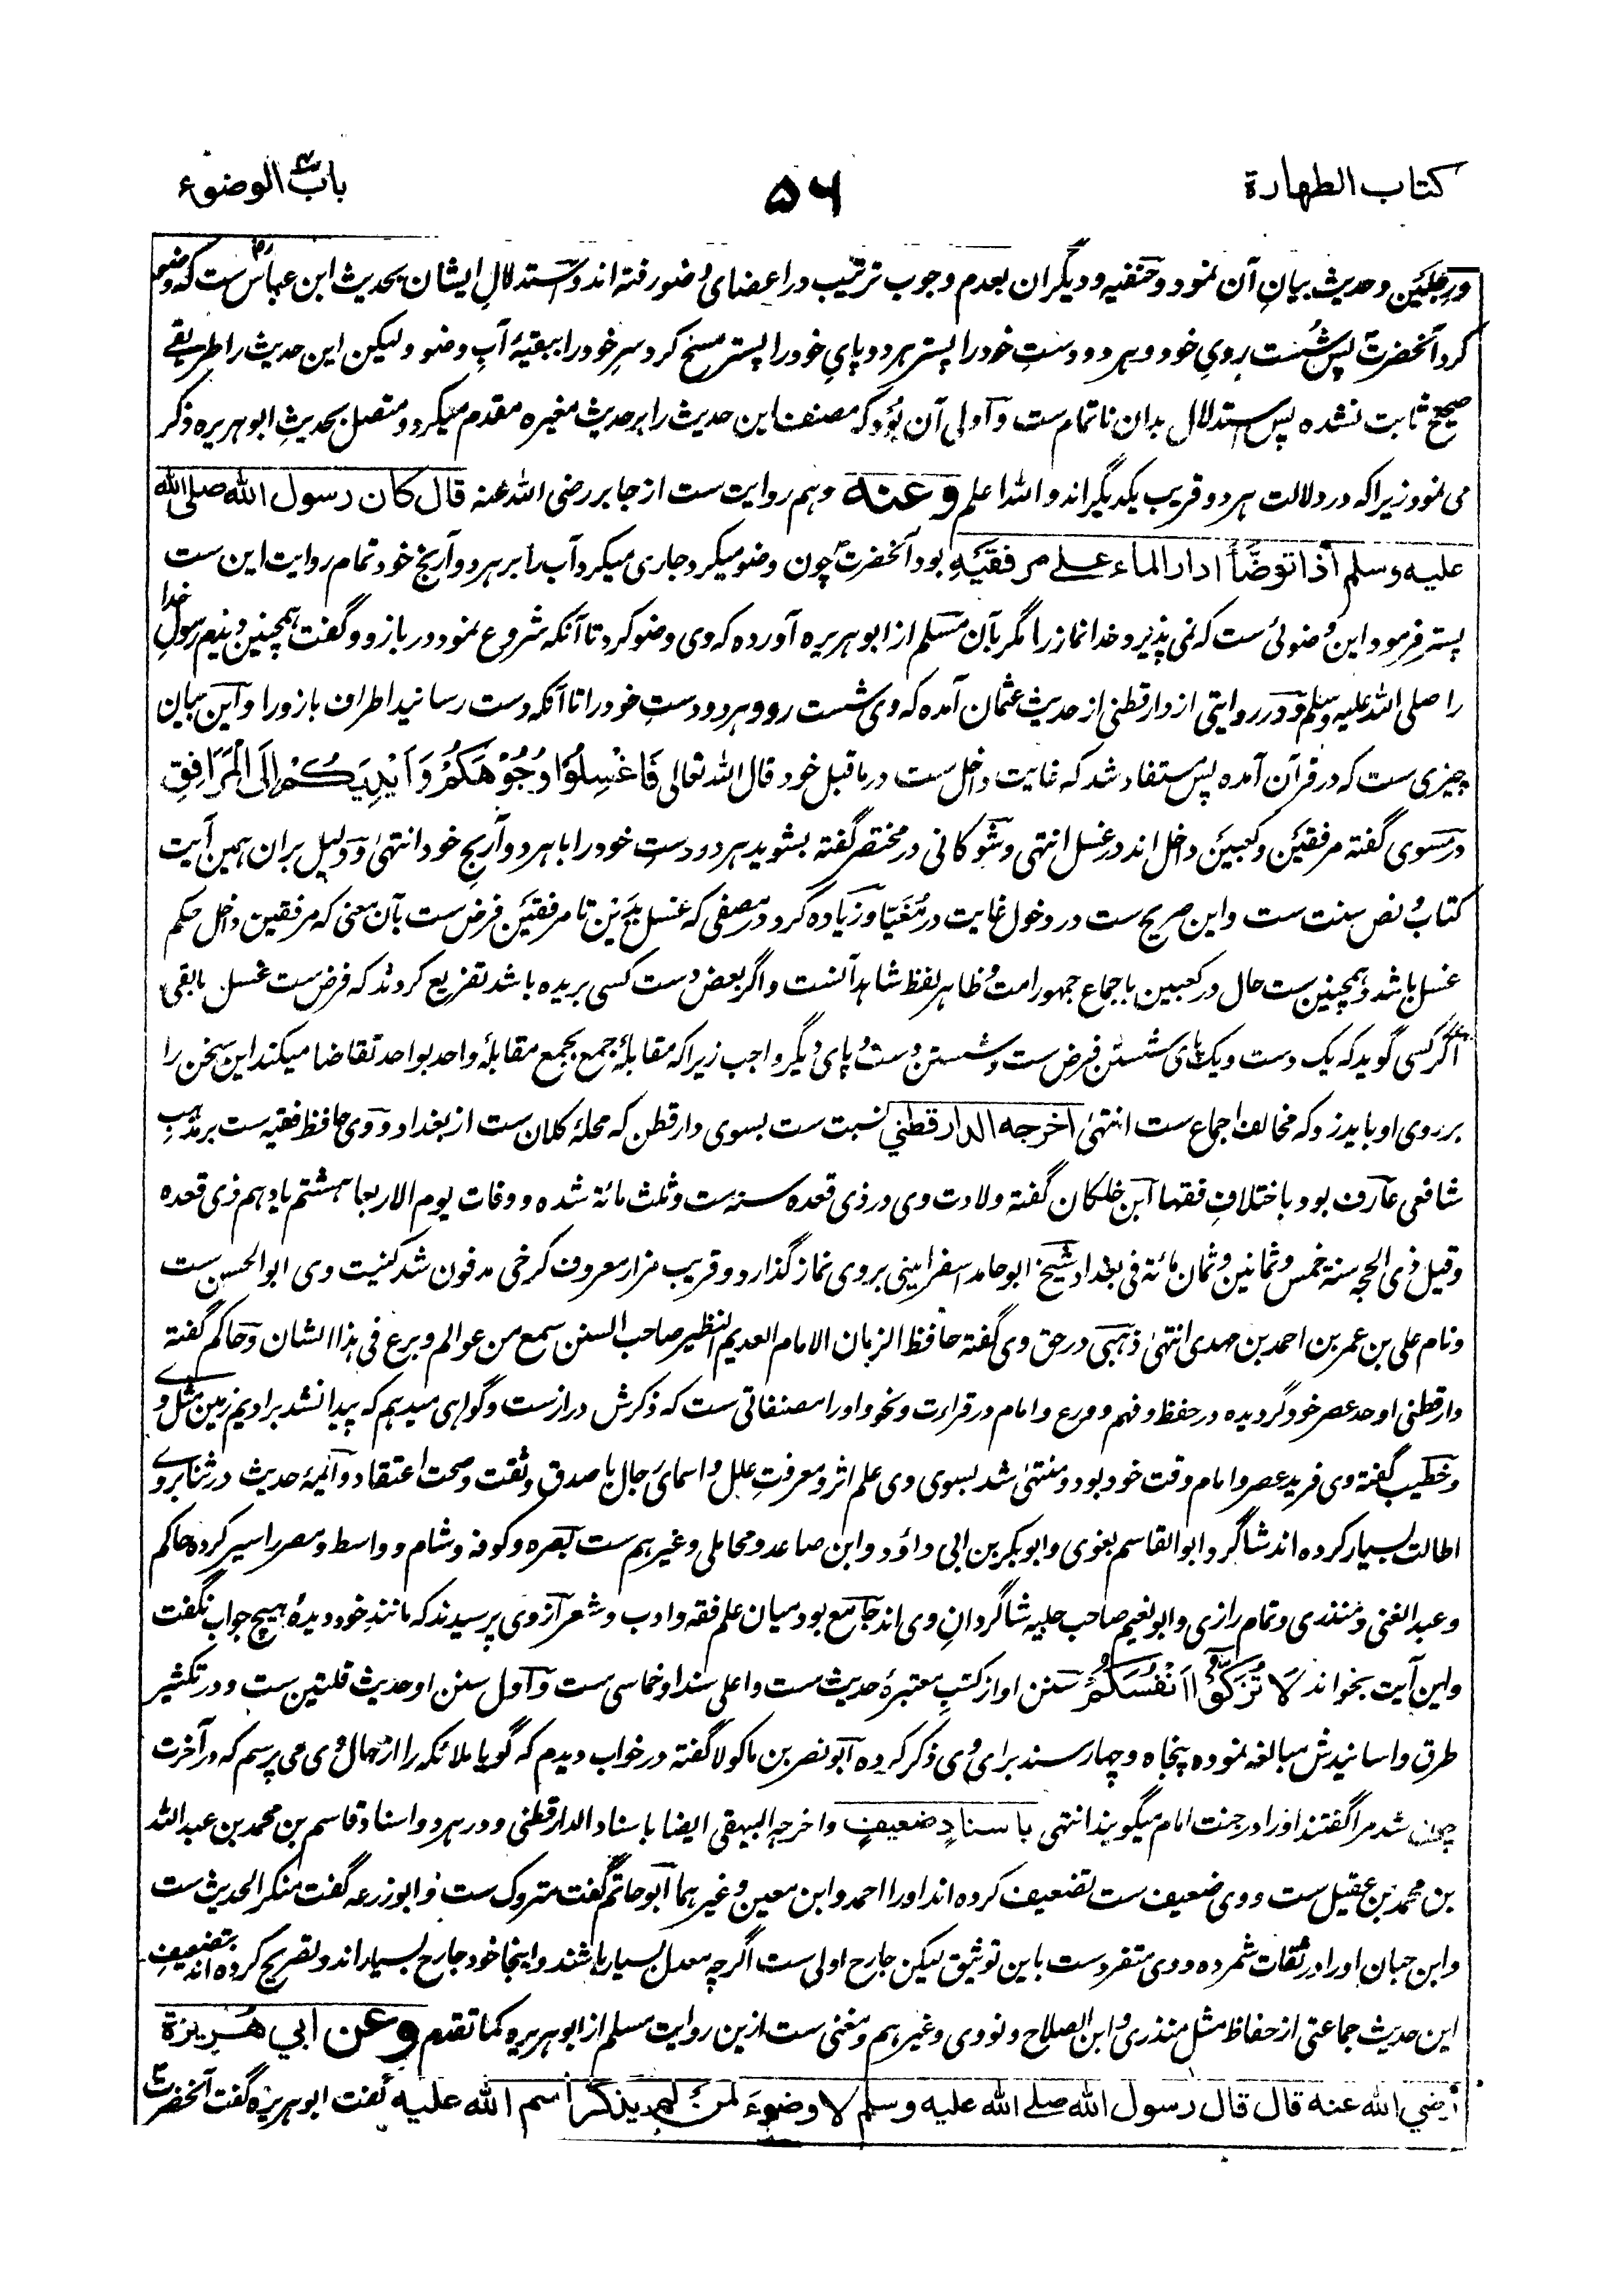 کتاب الطهارة
۵۶
باب الوضوء
ورجلین وحدیث بیانِ آن نمود وحنفیه ودیگران بعدم وجوب ترتیب در اعضای وضو رفته اند واستدلالِ ایشان بحدیث ابن عباس ست که وضو
کرد آنحضرت پس شُست رویِ خود وهر دو دستِ خود را پستر هر دو پایِ خود را پستر مسح کرد سرِ خود را ببقیهٔ آبِ وضو ولیکن این حدیث را طریقے
صحیح ثابت نشده پس استدلال بدان ناتمام ست وآولی آن بود که مصنف این حدیث را بر حدیث مغیره مقدم میکرد ومتصل بحدیثِ ابو هریره ذکر
می نمود زیرا که در دلالت هر دو قریب یکدیگر اند والله اعلم وعنه وهم روایت ست از جابر رضی الله عنه قال کان رسول الله صلی الله
علیه وسلم اذا توضّأ ادار الماء علے مرفقیهِ بود آنحضرت چون وضو میکرد جاری میکرد آب را بر هر دو آرنج خود تمام روایت این ست
پستر فرمود این وضوئی ست که نمی پذیرد خدا نماز را مگر بآن مسلم از ابو هریره آورده که وی وضو کرد تا آنکه شروع نمود در بازو وگفت همچنین دیدم رسولِ خدا
را صلی الله علیه وسلم ودر روایتی از دارقطنی از حدیث عثمان آمده که وی شست رو وهر دو دستِ خود را تا آنکه دست رسانید اطراف بازو را وآین بیان
چیزی ست که در قرآن آمده پس مستفاد شد که غایت داخل ست در ما قبل خود قال الله تعالی فَاغْسِلُوْا وُجُوْهَکُمْ وَاَیْدِیَکُمْ اِلَی الْمَرَافِقِ
در مسوی گفته مرفقین وکعبین داخل اند در غسل انتهی وشوکانی در مختصر گفته بشوید هر دو دستِ خود را با هر دو آرنجِ خود انتهیٰ ودلیل بران همین آیت
کتاب ونص سنت ست واین صریح ست در دخول غایت در مُغَیّا وزیاده کرد در مصفی که غسل یدین تا مرفقین فرض ست بآن معنی که مرفقین داخل حکم
غسل باشد وهمچنین ست حال در کعبین باجماع جمهور امت وظاهر لفظ شاهد آنست واگر بعض دست کسی بریده باشد تفریع کردند که فرض ست غسل مابقی
اگر کسی گوید که یک دست ویک پای شستن فرض ست وشستن دست وپای دیگر واجب زیرا که مقابلهٔ جمع بجمع مقابلهٔ واحد بواحد تقاضا میکند این سخن را
بر روی او باید زد که مخالف اجماع ست انتهیٰ اخرجه الدارقطني نسبت ست بسوی دارقطن که محلهٔ کلان ست از بغداد ووی حافظ فقیه ست بر مذهبِ
شافعی عارف بود باختلافِ فقها ابن خلکان گفته ولادت وی در ذی قعده سنه ست وثلث مائة شده ووفات یوم الاربعا هشتم یا دهم ذی قعده
وقیل ذی الحجه سنة خمس وثمانین وثمان مائة فی بغداد شیخ ابو حامد اسفراینی بر وی نماز گذارد وقریب مزار معروف کرخی مدفون شد کنیت وی ابو الحسن ست
ونام علی بن عمر بن احمد بن مهدی انتهیٰ ذهبی در حق وی گفته حافظ الزمان الامام العدیم النظیر صاحب السنن سمع من عوالم وبرع فی هذا الشان وحاکم گفته
دارقطنی اوحد عصر خود گردیده در حفظ وفهم وورع وامام در قراءت ونحو واو را مصنفاتی ست که ذکرش دراز ست وگواهی میدهم که پیدا نشد بر ادیم زمین مثل وے
وخطیب گفته وی فرید عصر وامام وقت خود بود ومنتهیٰ شد بسوی وی علم اثر ومعرفتِ علل واسمای رجال با صدق وثقت وصحت اعتقاد وآئمهٔ حدیث در ثنا بر وے
اطالت بسیار کرده اند شاگرد ابو القاسم بغوی وابو بکر بن ابی داؤد وابن صاعد ومحاملی وغیرهم ست بصره وکوفه وشام وواسط ومصر را سیر کرده حاکم
وعبد الغنی ومنذری وتمام رازی وابو نعیم صاحب حلیه شاگردانِ وی اند جامع بود میان علم فقه وادب وشعر از وی پرسیدند که مانندِ خود دیدهٔ هیچ جواب نگفت
واین آیت بخواند لَا تُزَکُّوْا اَنْفُسَکُمْ سنن او از کتبِ معتبرهٔ حدیث ست واعلی سند او خماسی ست وآول سنن او حدیث قلتین ست ودر تکثیر
طرق واسانیدش مبالغه نموده پنجاه وچهار سند برای وی ذکر کرده آبو نصر بن ماکولا گفته در خواب دیدم که گویا ملائکه را از حال وی می پرسم که در آخرت
چون شد مرا گفتند او را در جنت امام میگویند انتهی باسنادٍ ضعیفٍ واخرجه البیهقی ایضا باسناد الدارقطنی ودر هر دو اسناد قاسم بن محمد بن عبد الله
بن محمد بن عقیل ست ووی ضعیف ست تضعیف کرده اند او را احمد وابن معین وغیرهما آبو حاتم گفت متروک ست وابو زرعه گفت منکر الحدیث ست
وابن حبان او را در ثقات شمرده ووی متفرد ست باین توثیق لیکن جارح اولی ست اگرچه معدل بسیار باشند واینجا خود جارح بسیار اند وتصریح کرده اند بتضعیفِ
این حدیث جماعتی از حفاظ مثل منذری وابن الصلاح ونووی وغیرهم ومغنی ست ازین روایت مسلم از ابو هریره کما تقدم وعن ابي هريرة
رضي الله عنه قال قال رسول الله صلے الله علیه وسلم لا وضوءَ لمن لم یذکر اسم الله علیه گفت ابو هریره گفت آنحضرت